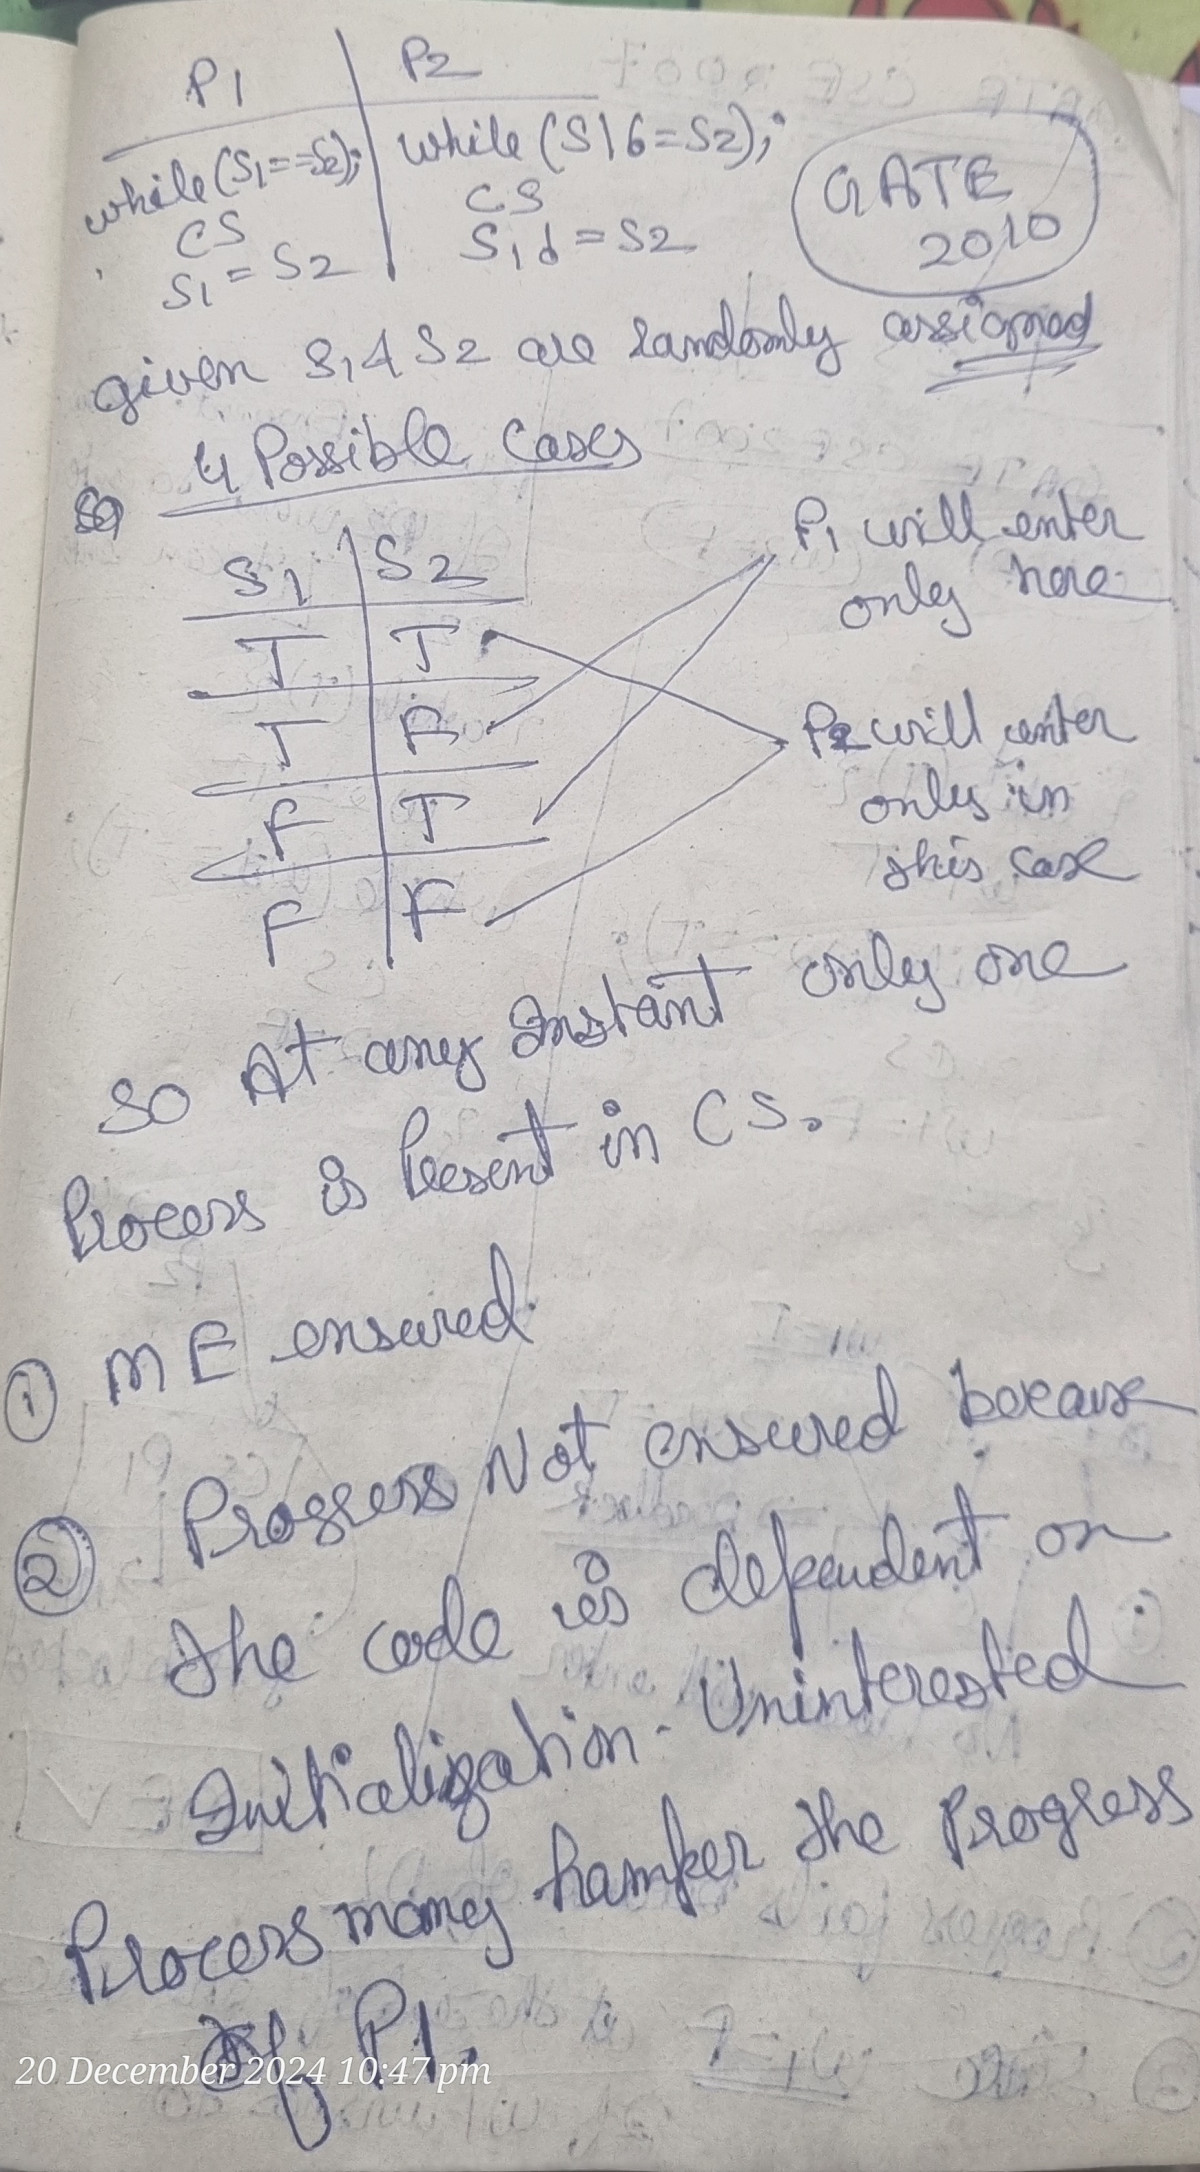 P1 P2
while(S1==S2); while (S1 6=S2);
CS CS
S1 = S2 S1 d = S2
GATE
2010
given S1 & S2 are randomly assigned
4 Possible Cases
S1 S2
T T
T F
F T
F F
P1 will enter
only here
P2 will enter
only in
this case
So At any Instant only one
Process is Present in CS.
① ME ensured.
② Progress Not ensured because
the code is dependent on
Initialization. Uninterested
Process many hamper the Progress
of P1.
20 December 2024 10:47 pm